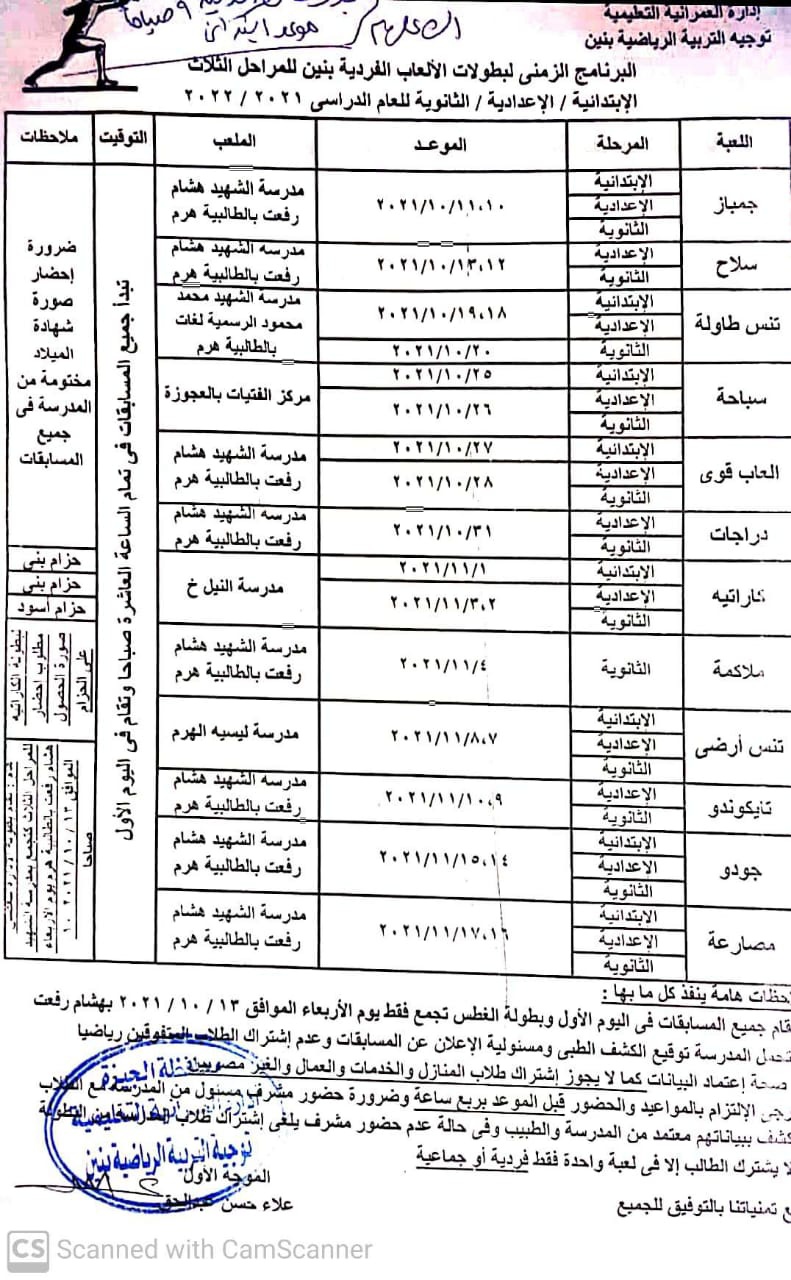 إدارة العمرانية التعليمية
توجيه التربية الرياضية بنين
٩ صباحا
البرنامج الزمنى لبطولات الألعاب الفردية بنين للمراحل الثلاث
الإبتدائية / الإعدادية / الثانوية للعام الدراسى ٢٠٢١ / ٢٠٢٢
اللعبة المرحلة الموعد الملعب التوقيت ملاحظات
جمباز
الإبتدائية
الإعدادية
الثانوية
٢٠٢١/١٠/١١،١٠
مدرسة الشهيد هشام
رفعت بالطالبية هرم
سلاح
الإعدادية
الثانوية
٢٠٢١/١٠/١٣،١٢
مدرسة الشهيد هشام
رفعت بالطالبية هرم
تنس طاولة
الإبتدائية
الإعدادية
٢٠٢١/١٠/١٩،١٨
الثانوية
٢٠٢١/١٠/٢٠
مدرسة الشهيد محمد
محمود الرسمية لغات
بالطالبية هرم
سباحة
الإبتدائية
٢٠٢١/١٠/٢٥
الإعدادية
الثانوية
٢٠٢١/١٠/٢٦
مركز الفتيات بالعجوزة
العاب قوى
الإبتدائية
٢٠٢١/١٠/٢٧
الإعدادية
الثانوية
٢٠٢١/١٠/٢٨
مدرسة الشهيد هشام
رفعت بالطالبية هرم
دراجات
الإعدادية
الثانوية
٢٠٢١/١٠/٣١
مدرسة الشهيد هشام
رفعت بالطالبية هرم
كاراتيه
الإبتدائية
٢٠٢١/١١/١
الإعدادية
الثانوية
٢٠٢١/١١/٣،٢
مدرسة النيل خ
ملاكمة
الثانوية
٢٠٢١/١١/٤
مدرسة الشهيد هشام
رفعت بالطالبية هرم
تنس أرضى
الإبتدائية
الإعدادية
الثانوية
٢٠٢١/١١/٨،٧
مدرسة ليسيه الهرم
تايكوندو
الإعدادية
الثانوية
٢٠٢١/١١/١٠،٩
مدرسة الشهيد هشام
رفعت بالطالبية هرم
جودو
الإبتدائية
الإعدادية
الثانوية
٢٠٢١/١١/١٥،١٤
مدرسة الشهيد هشام
رفعت بالطالبية هرم
مصارعة
الإبتدائية
الإعدادية
الثانوية
٢٠٢١/١١/١٧،١٦
مدرسة الشهيد هشام
رفعت بالطالبية هرم
تبدأ جميع المسابقات فى تمام الساعة العاشرة صباحا وتقام فى اليوم الأول
ضرورة
إحضار
صورة
شهادة
الميلاد
مختومة من
المدرسة فى
جميع
المسابقات
حزام بنى
حزام بنى
حزام أسود
لبطولة الكاراتيه
مطلوب احضار
صورة الحصول
على الحزام
للمراحل الثلاث كتجمع بمدرسة الشهيد
هشام رفعت بالطالبية هرم يوم الأربعاء
الموافق ١٣ / ١٠ / ٢٠٢١ ١٠
صباحا
حظات هامة ينفذ كل ما بها :
قام جميع المسابقات فى اليوم الأول وبطولة الغطس تجمع فقط يوم الأربعاء الموافق ١٣ / ١٠ / ٢٠٢١ بهشام رفعت
تحمل المدرسة توقيع الكشف الطبى ومسئولية الإعلان عن المسابقات وعدم إشتراك الطلاب المتفوقين رياضيا
صحة إعتماد البيانات كما لا يجوز إشتراك طلاب المنازل والخدمات والعمال والغير مصوبين
رجى الإلتزام بالمواعيد والحضور قبل الموعد بربع ساعة وضرورة حضور مشرف مسئول من المدرسة مع الطلاب
كشف ببياناتهم معتمد من المدرسة والطبيب وفى حالة عدم حضور مشرف يلغى إشتراك طلاب المدرسة من البطولة
لا يشترك الطالب إلا فى لعبة واحدة فقط فردية أو جماعية
ع تمنياتنا بالتوفيق للجميع
الموجه الأول
علاء حسن عبدالحق
توجية التربية الرياضية بنين
CS Scanned with CamScanner